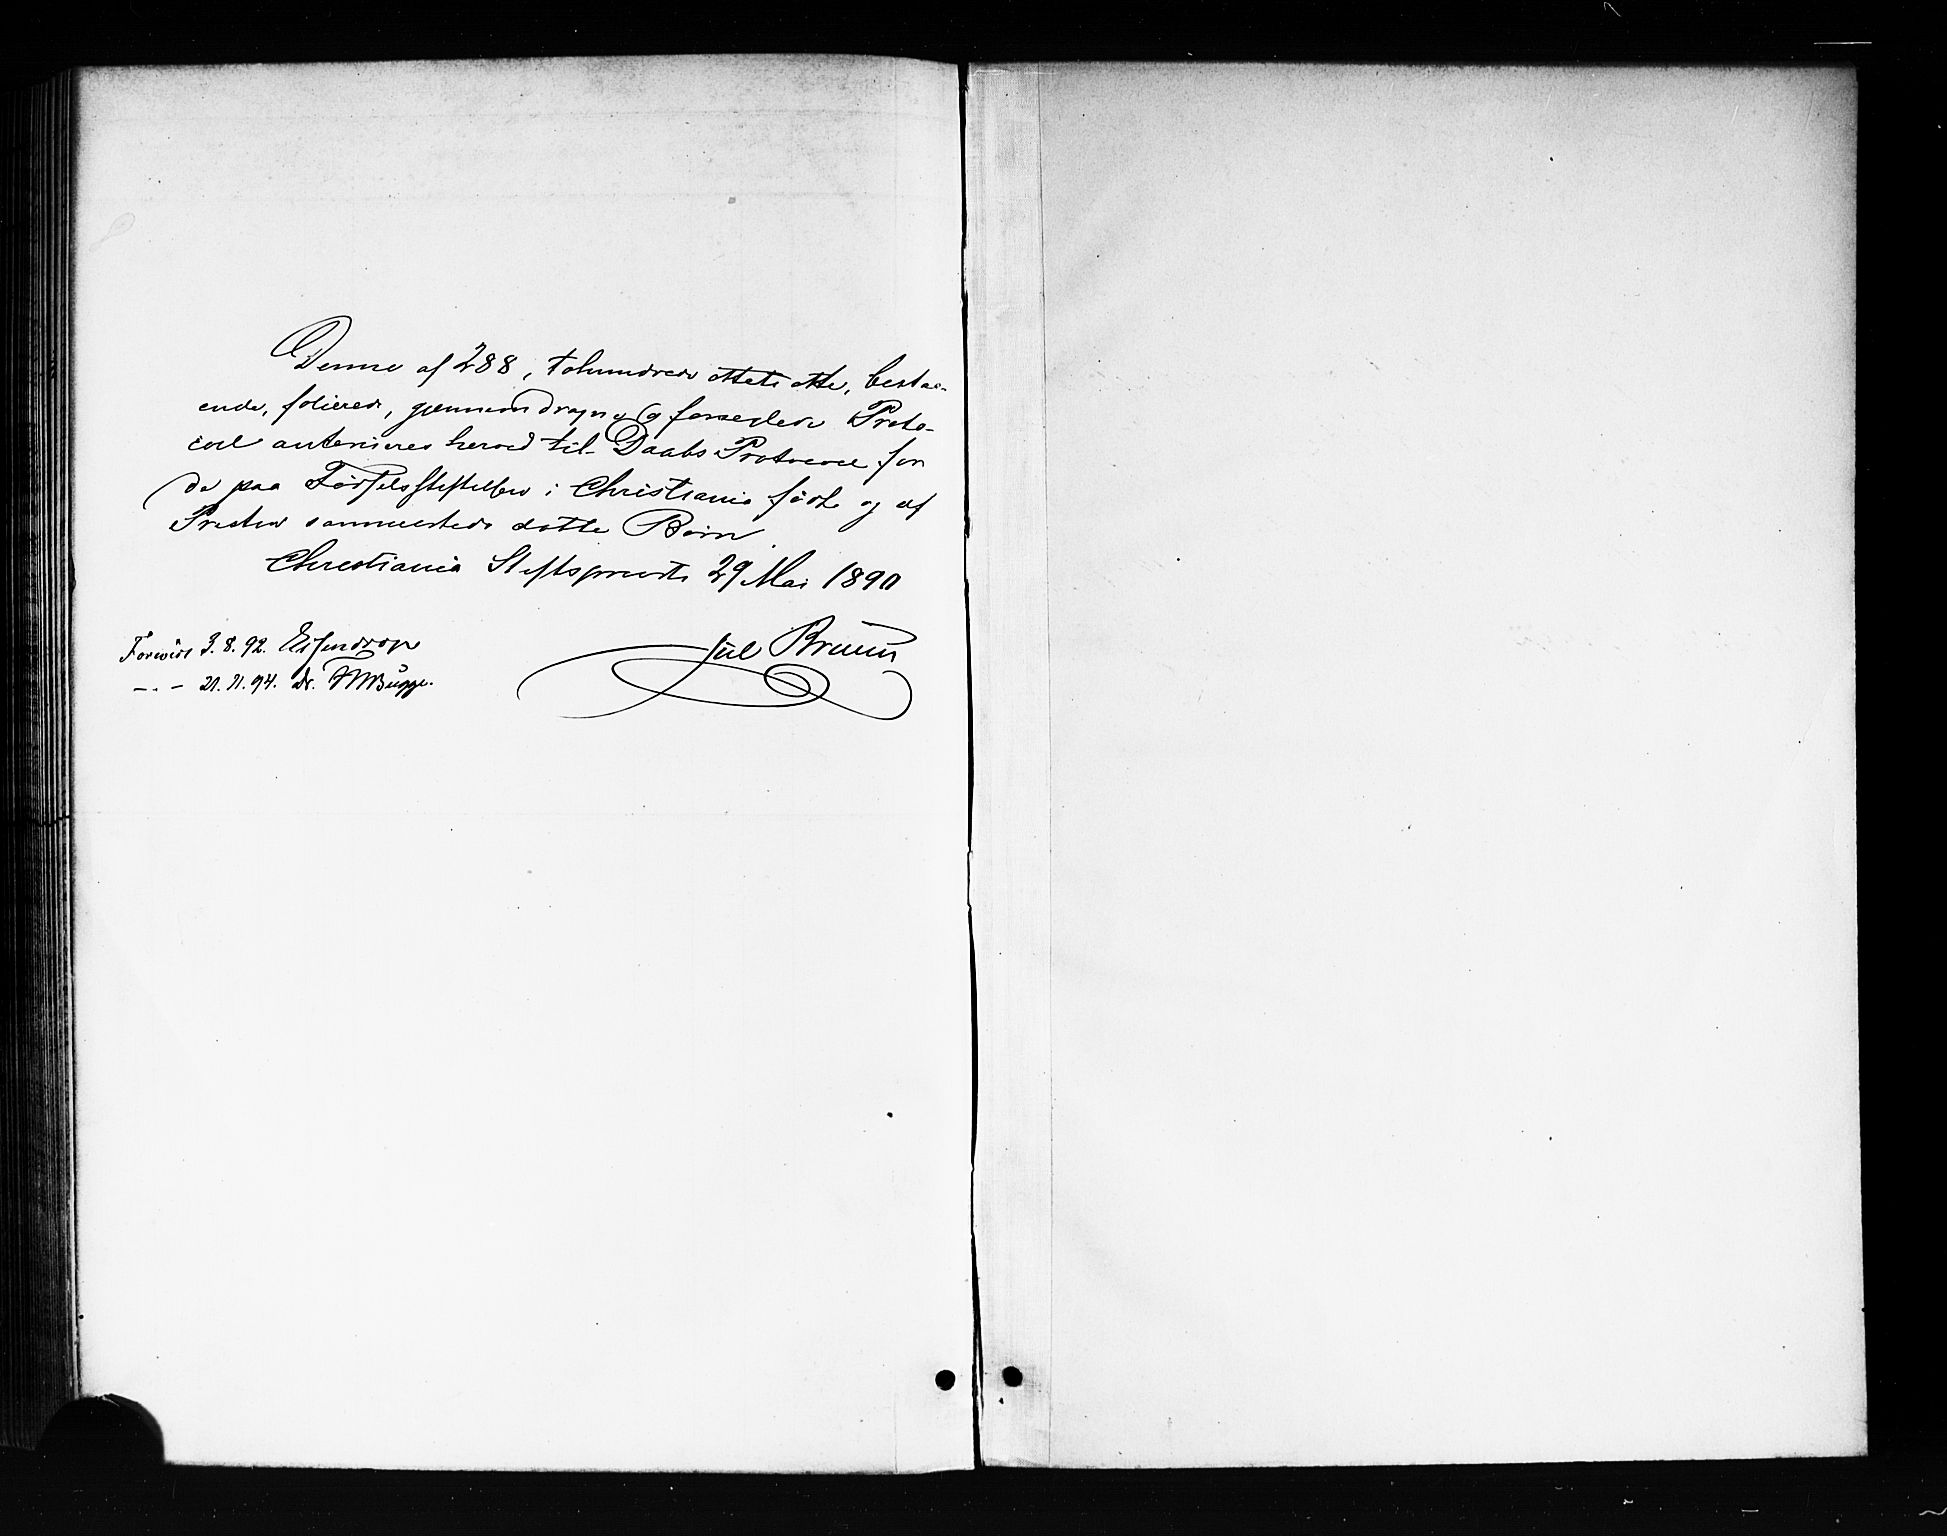 Denne af 288, tohundrede otteti otte, bestaa-
ende, folierede, gjennemdragne og forseglede Proto-
col autoriseres herved til Daabs Protocol for
de paa Fødselsstiftelsen i Christiania fødte og af
Præsten sammesteds døbte Børn
Christiania Stiftsprovsti 29 Mai 1890
Jul Bruun
Forevist 3.8.92.
—.— 21.11.94. Bugge.